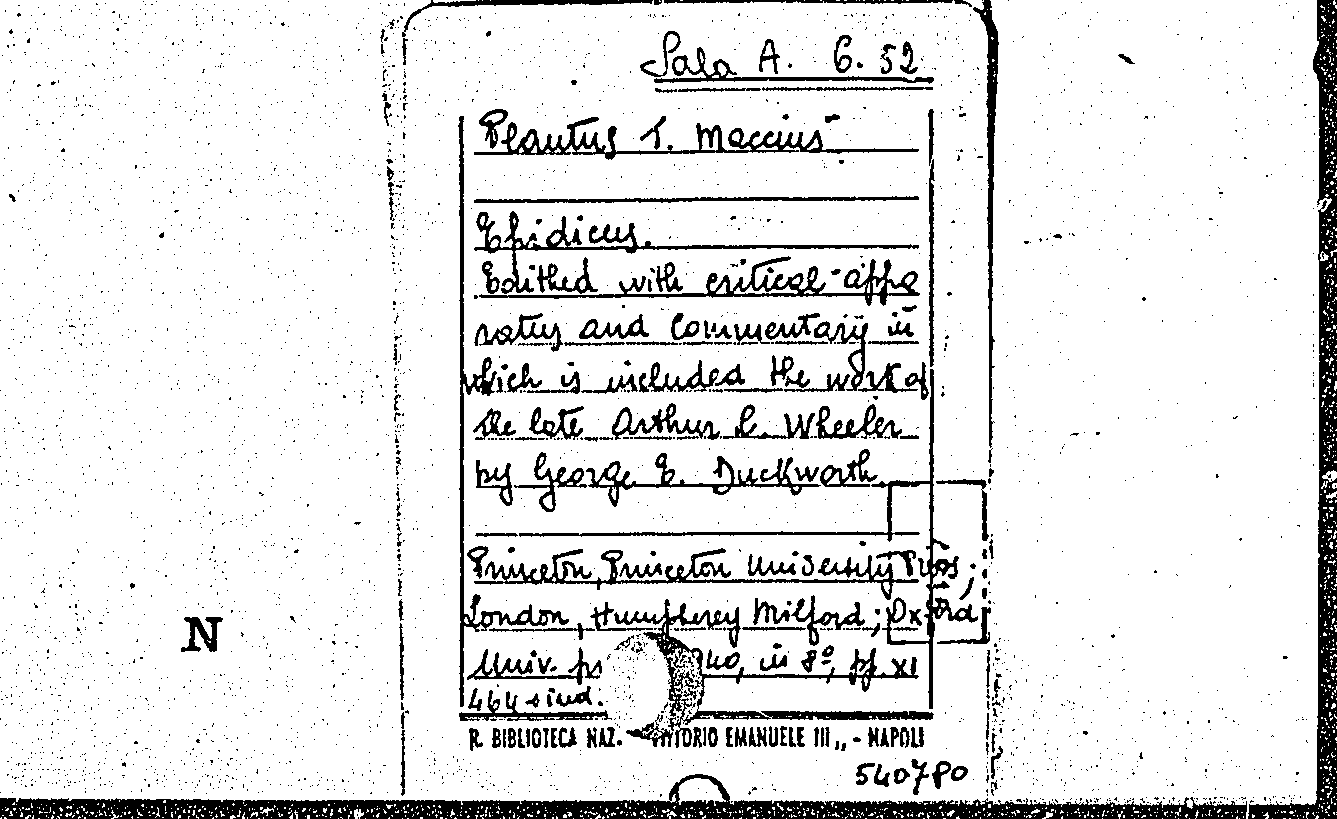 Sala A. 6. 52
Plautus T. Maccius
Epidicus.
Edithed with critical appa
ratus and commentary in
which is included the work of
the late Arthur L. Wheeler
by George E. Duckworth.
Princeton, Princeton University Press;
London, Humpherey Milford; Oxford
Univ. pr 940, in 8º, pp. XI
464 + ind.
R. BIBLIOTECA NAZ. VITTORIO EMANUELE III„ - NAPOLI
540780
N